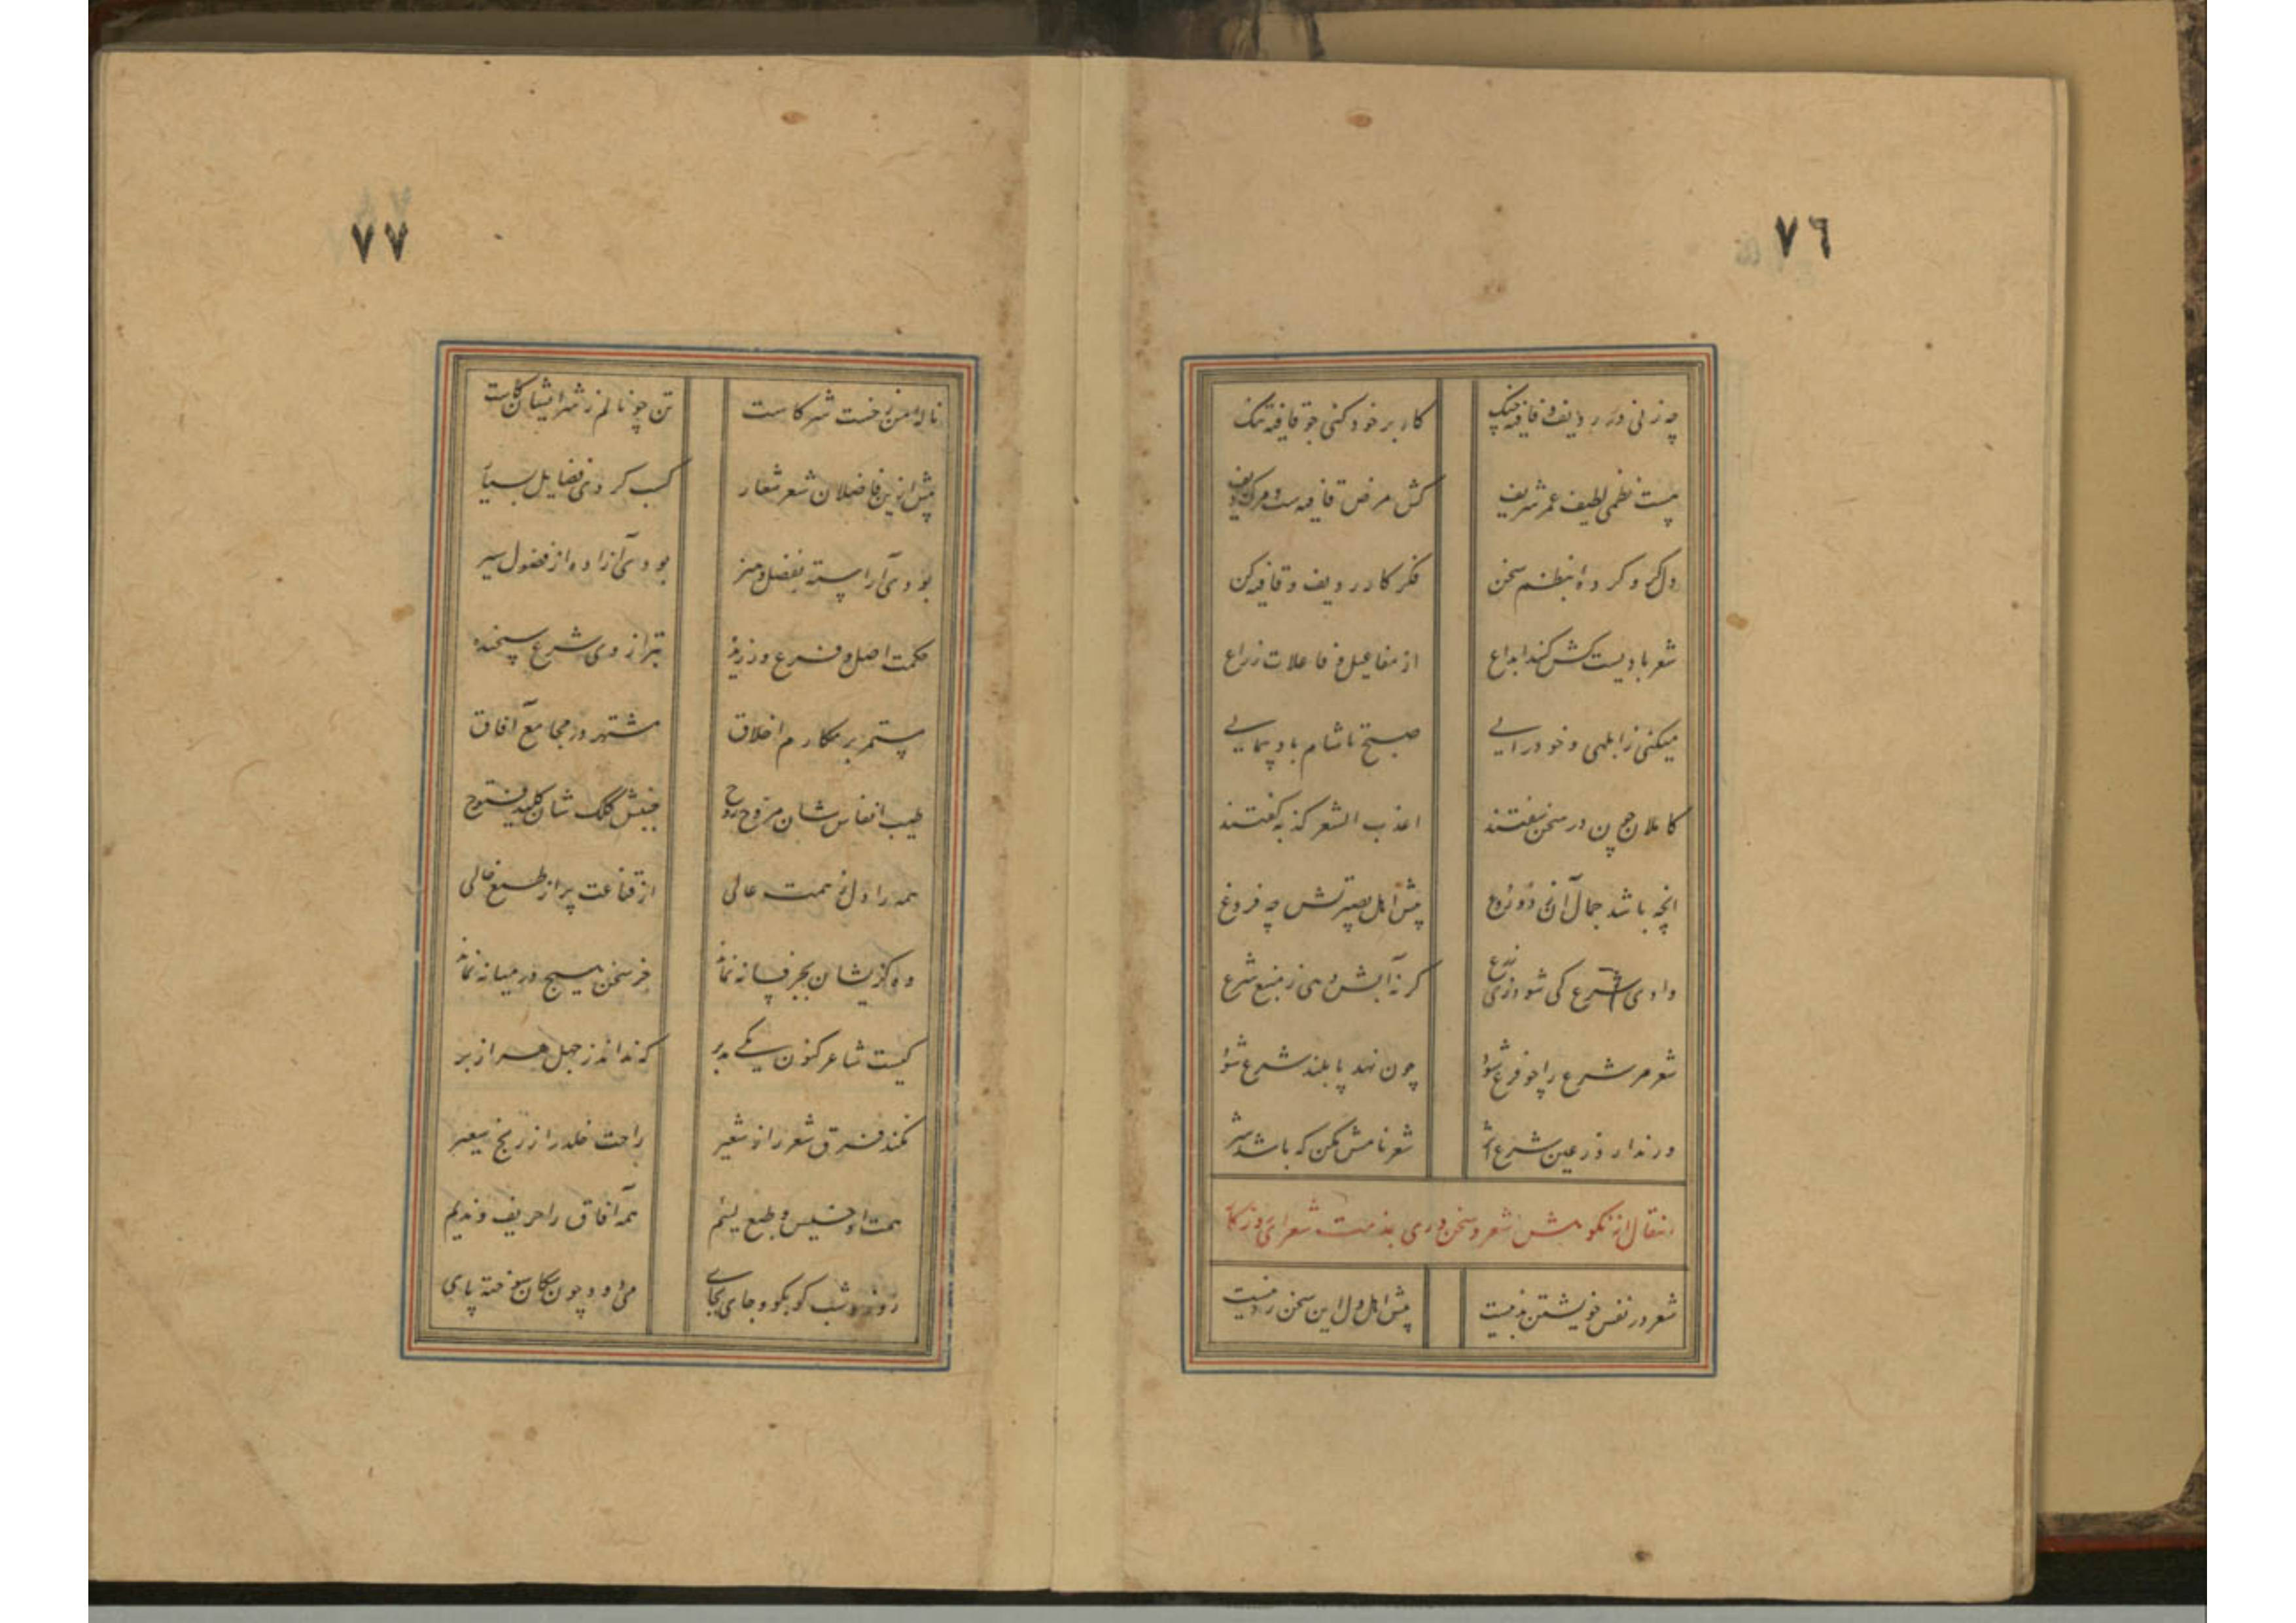 ٧٦
چه زنی در ردیف و قافیه چنگ
کار بر خود کنی چو قافیه تنگ
نیست نظمی لطیف عمر شریف
کش مرض قافیه ست و مرگ ردیف
دل گرو کرده‌ای بنظم سخن
فکر کار ردیف و قافیه کن
شعر بادیست کش کند ابداع
از مفاعیل و فاعلات ذراع
میکنی ز ابلهی و خودرایی
صبح تا شام بادپیمایی
کاملان چون در سخن سفتند
اعذب الشعر کذبه گفتند
آنچه باشد جمال آن ز دروغ
پیش اهل بصیرتش چه فروغ
وادی شرع کی شود زرع
گر نه آبش دهی ز منبع شرع
شعر مر شرع را چو فرع شود
چون نهد پا بلند شرع شود
ور ندارد ز عین شرع اثر
شعر نامش مکن که باشد شر
انتقال از نکوهش شعر و سخنوری بمذمت شعرای روزگار
شعر در نفس خویشتن بد نیست
پیش اهل دل این سخن رد نیست
٧٧
ناله من ز خست شرکاست
تن چو نالم ز شر ایشان کاست
پیش ازین فاضلان شعر شعار
کسب کردی فضایل بسیار
بودی آراسته بفضل و هنر
بودی آزاده از فضول سیر
حکمت اصل و فرع ورزیده
بترازوی شرع سنجیده
مستمر بر مکارم اخلاق
مشتهر در مجامع آفاق
طیب انفاس شان مروح روح
جنبش کلک شان کلید فتوح
همه را دل ز همت عالی
از قناعت پر از طمع خالی
وه کزیشان بجز فسانه نماند
جز سخن هیچ در میانه نماند
کیست شاعر کنون یکی مدبر
که نداند ز جهل هر از بر
نکند فرق شعر را ز شعیر
راحت خلد را ز رنج سعیر
همت او خسیس و طبع لئیم
همه آفاق را حریف و ندیم
روز و شب کو بکو و جای بجای
می‌دود چون سگان سوخته پای